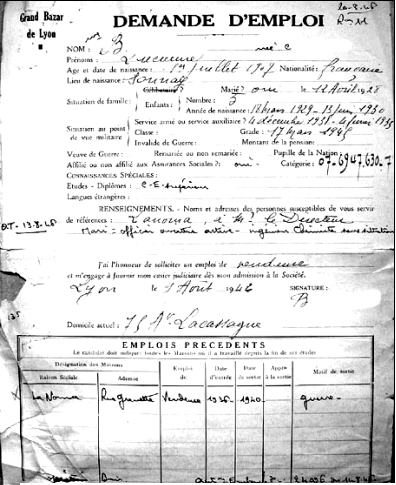 Grand Bazar
de Lyon
20-8-46
DEMANDE D'EMPLOI
NOM : B née C
Prénoms : Lucienne
Age et date de naissance : 1er juillet 1907 Nationalité : française
Lieu de naissance :
Célibataire ? Marié ? oui le 12 Août 28
Situation de famille : Enfants : Nombre : 3
Année de naissance : 18 mars 1929 - 13 juin 1930
Situation au point de vue militaire
Service armé ou service auxiliaire ? 4 décembre 1931 - 4 juin 1935
Classe : Grade : 17 mars 1945
Invalide de Guerre : Montant de la pension :
Veuve de Guerre : Remariée ou non remariée : Pupille de la Nation :
Affilié ou non affilié aux Assurances Sociales ? : oui - Catégorie : 07-6947.630-7
CONNAISSANCES SPÉCIALES :
Etudes - Diplômes : C-E-
Langues étrangères :
RENSEIGNEMENTS. - Noms et adresses des personnes susceptibles de vous servir
de références : à Mr le Directeur
13-8-46
Mari = officier active - ingénieur Chimiste
J'ai l'honneur de solliciter un emploi de vendeuse
et m'engage à fournir mon casier judiciaire dès mon admission à la Société.
Lyon le 1 Août 1946 SIGNATURE :
B
Domicile actuel : 75 Av. Lacassagne
EMPLOIS PRECEDENTS
Le candidat doit indiquer toutes les Maisons où il a travaillé depuis la fin de ses études
Désignation des Maisons
Raison Sociale Adresse Emploi de Date d'entrée Date de sortie Appts à la sortie Motif de sortie
La Norma Rue Grenette Vendeuse 1936- 1940- guerre-